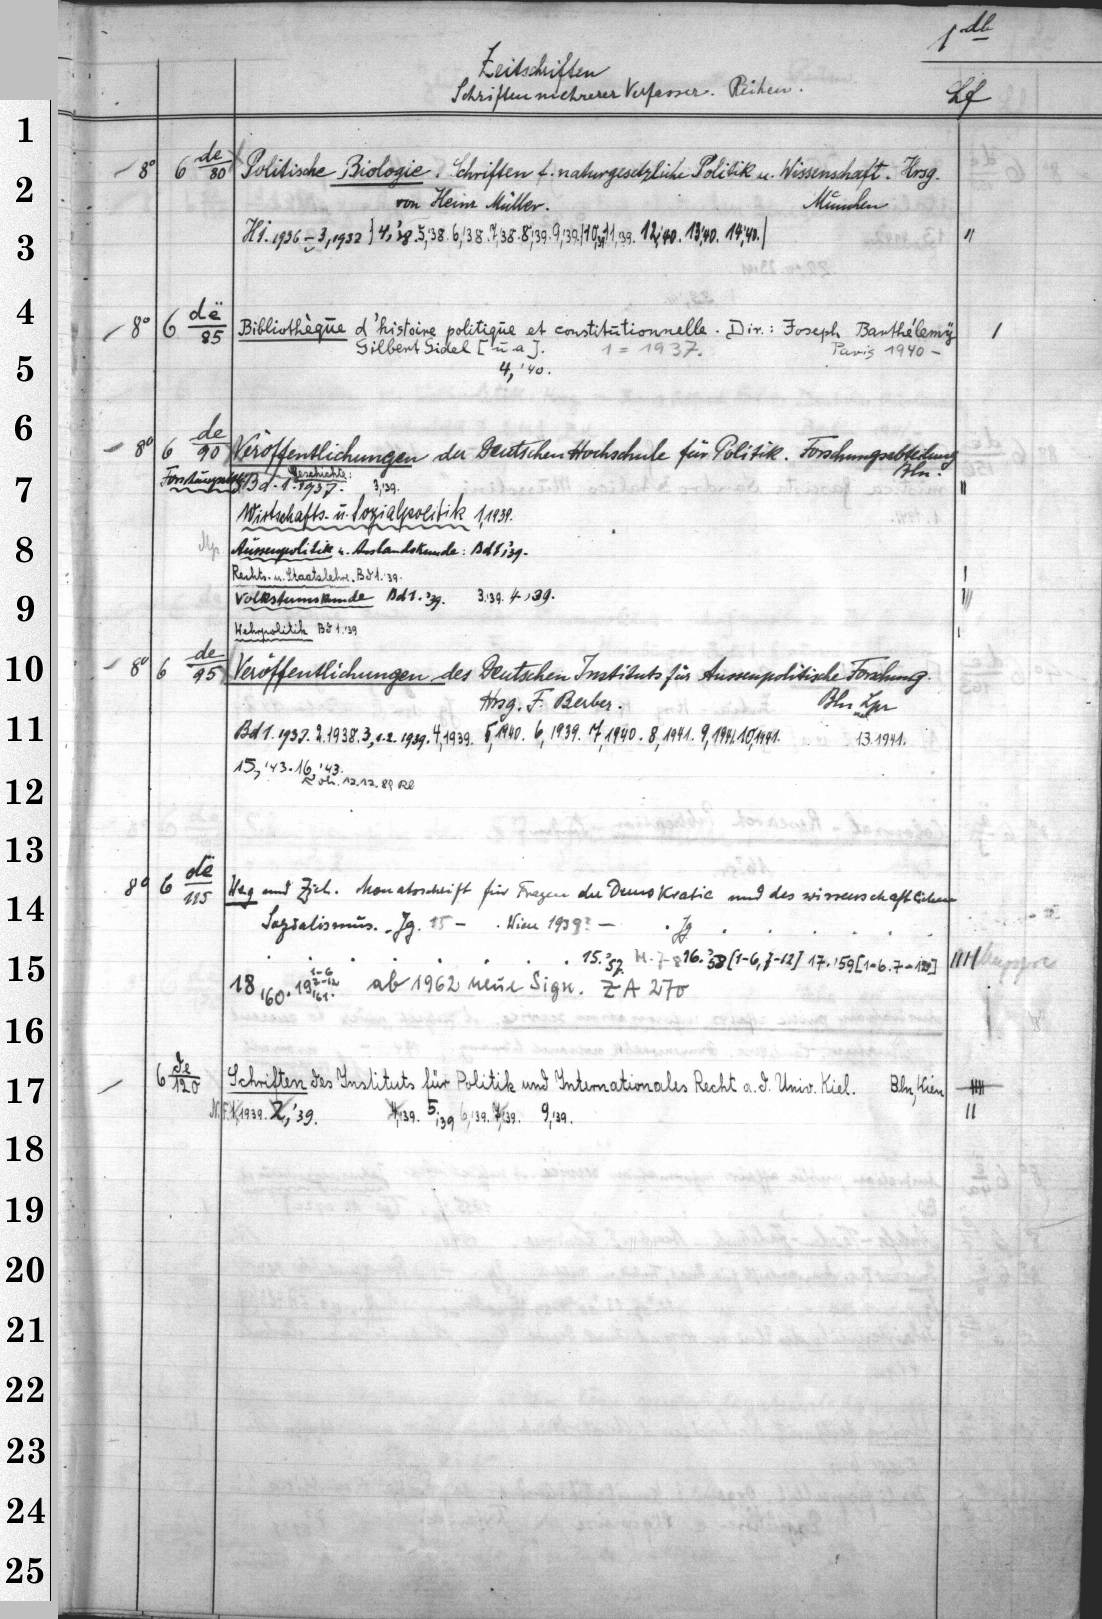 1 db
Zeitschriften
Schriften mehrerer Verfasser. Reihen.
1
2
3
4
5
6
7
8
9
10
11
12
13
14
15
16
17
18
19
20
21
22
23
24
25
8° 6 de/80 Politische Biologie. Schriften f. naturgesetzliche Politik u. Wissenschaft. Hrsg.
von Heinz Müller. München
H. 1936 – 3,1937 4,'38. 5,'38. 6,'38. 7,'38. 8,'39. 9,'39. 10,'39. 11,'39. 12,'40. 13,'40. 14,'40.
8° 6 de/85 Bibliothèque d'histoire politique et constitutionnelle. Dir.: Joseph Barthélemy
Gilbert Gidel [u a]. 1 = 1937. Paris 1940 –
4, '40.
8° 6 de/90 Veröffentlichungen der Deutschen Hochschule für Politik. Forschungsabteilung
Bln.
Geschichte:
Bd. 1. 1937. 3,'39.
Wirtschafts- u. Sozialpolitik 1,1938.
Aussenpolitik u. Auslandskunde: Bd 1,'39.
Rechts- u. Staatslehre. Bd 1. '39.
Volkstumskunde Bd 1. '39. 3.'39. 4,'39.
Wehrpolitik Bd 1. '39
8° 6 de/95 Veröffentlichungen des Deutschen Instituts für Aussenpolitische Forschung.
Hrsg. F. Berber. Bln Lpz
Bd 1. 1937. 2.1938. 3,1.2. 1939. 4,1939. 5,1940. 6, 1939. 7,1940. 8,1941. 9,1941. 10,1941. 13.1941.
15, '43. 16, '43.
8° 6 de/115 Weg und Ziel. Monatsschrift für Fragen der Demokratie und des wissenschaftlichen
Sozialismus. Jg. 15 – . Wien 1939? – . Jg
15.'57. H. 7-8 16.'58 [1-6, 7-12] 17.'59 [1-6. 7-12]
18 '60. 19 1-6 7-12 '61. ab 1962 neue Sign. ZA 270
6 de/120 Schriften des Instituts für Politik und Internationales Recht a. d. Univ. Kiel. Bln, Kiel
N.F. 1,1939. 2,'39. 4,'39. 5,'39 6,'39. 7,'39. 9,'39.